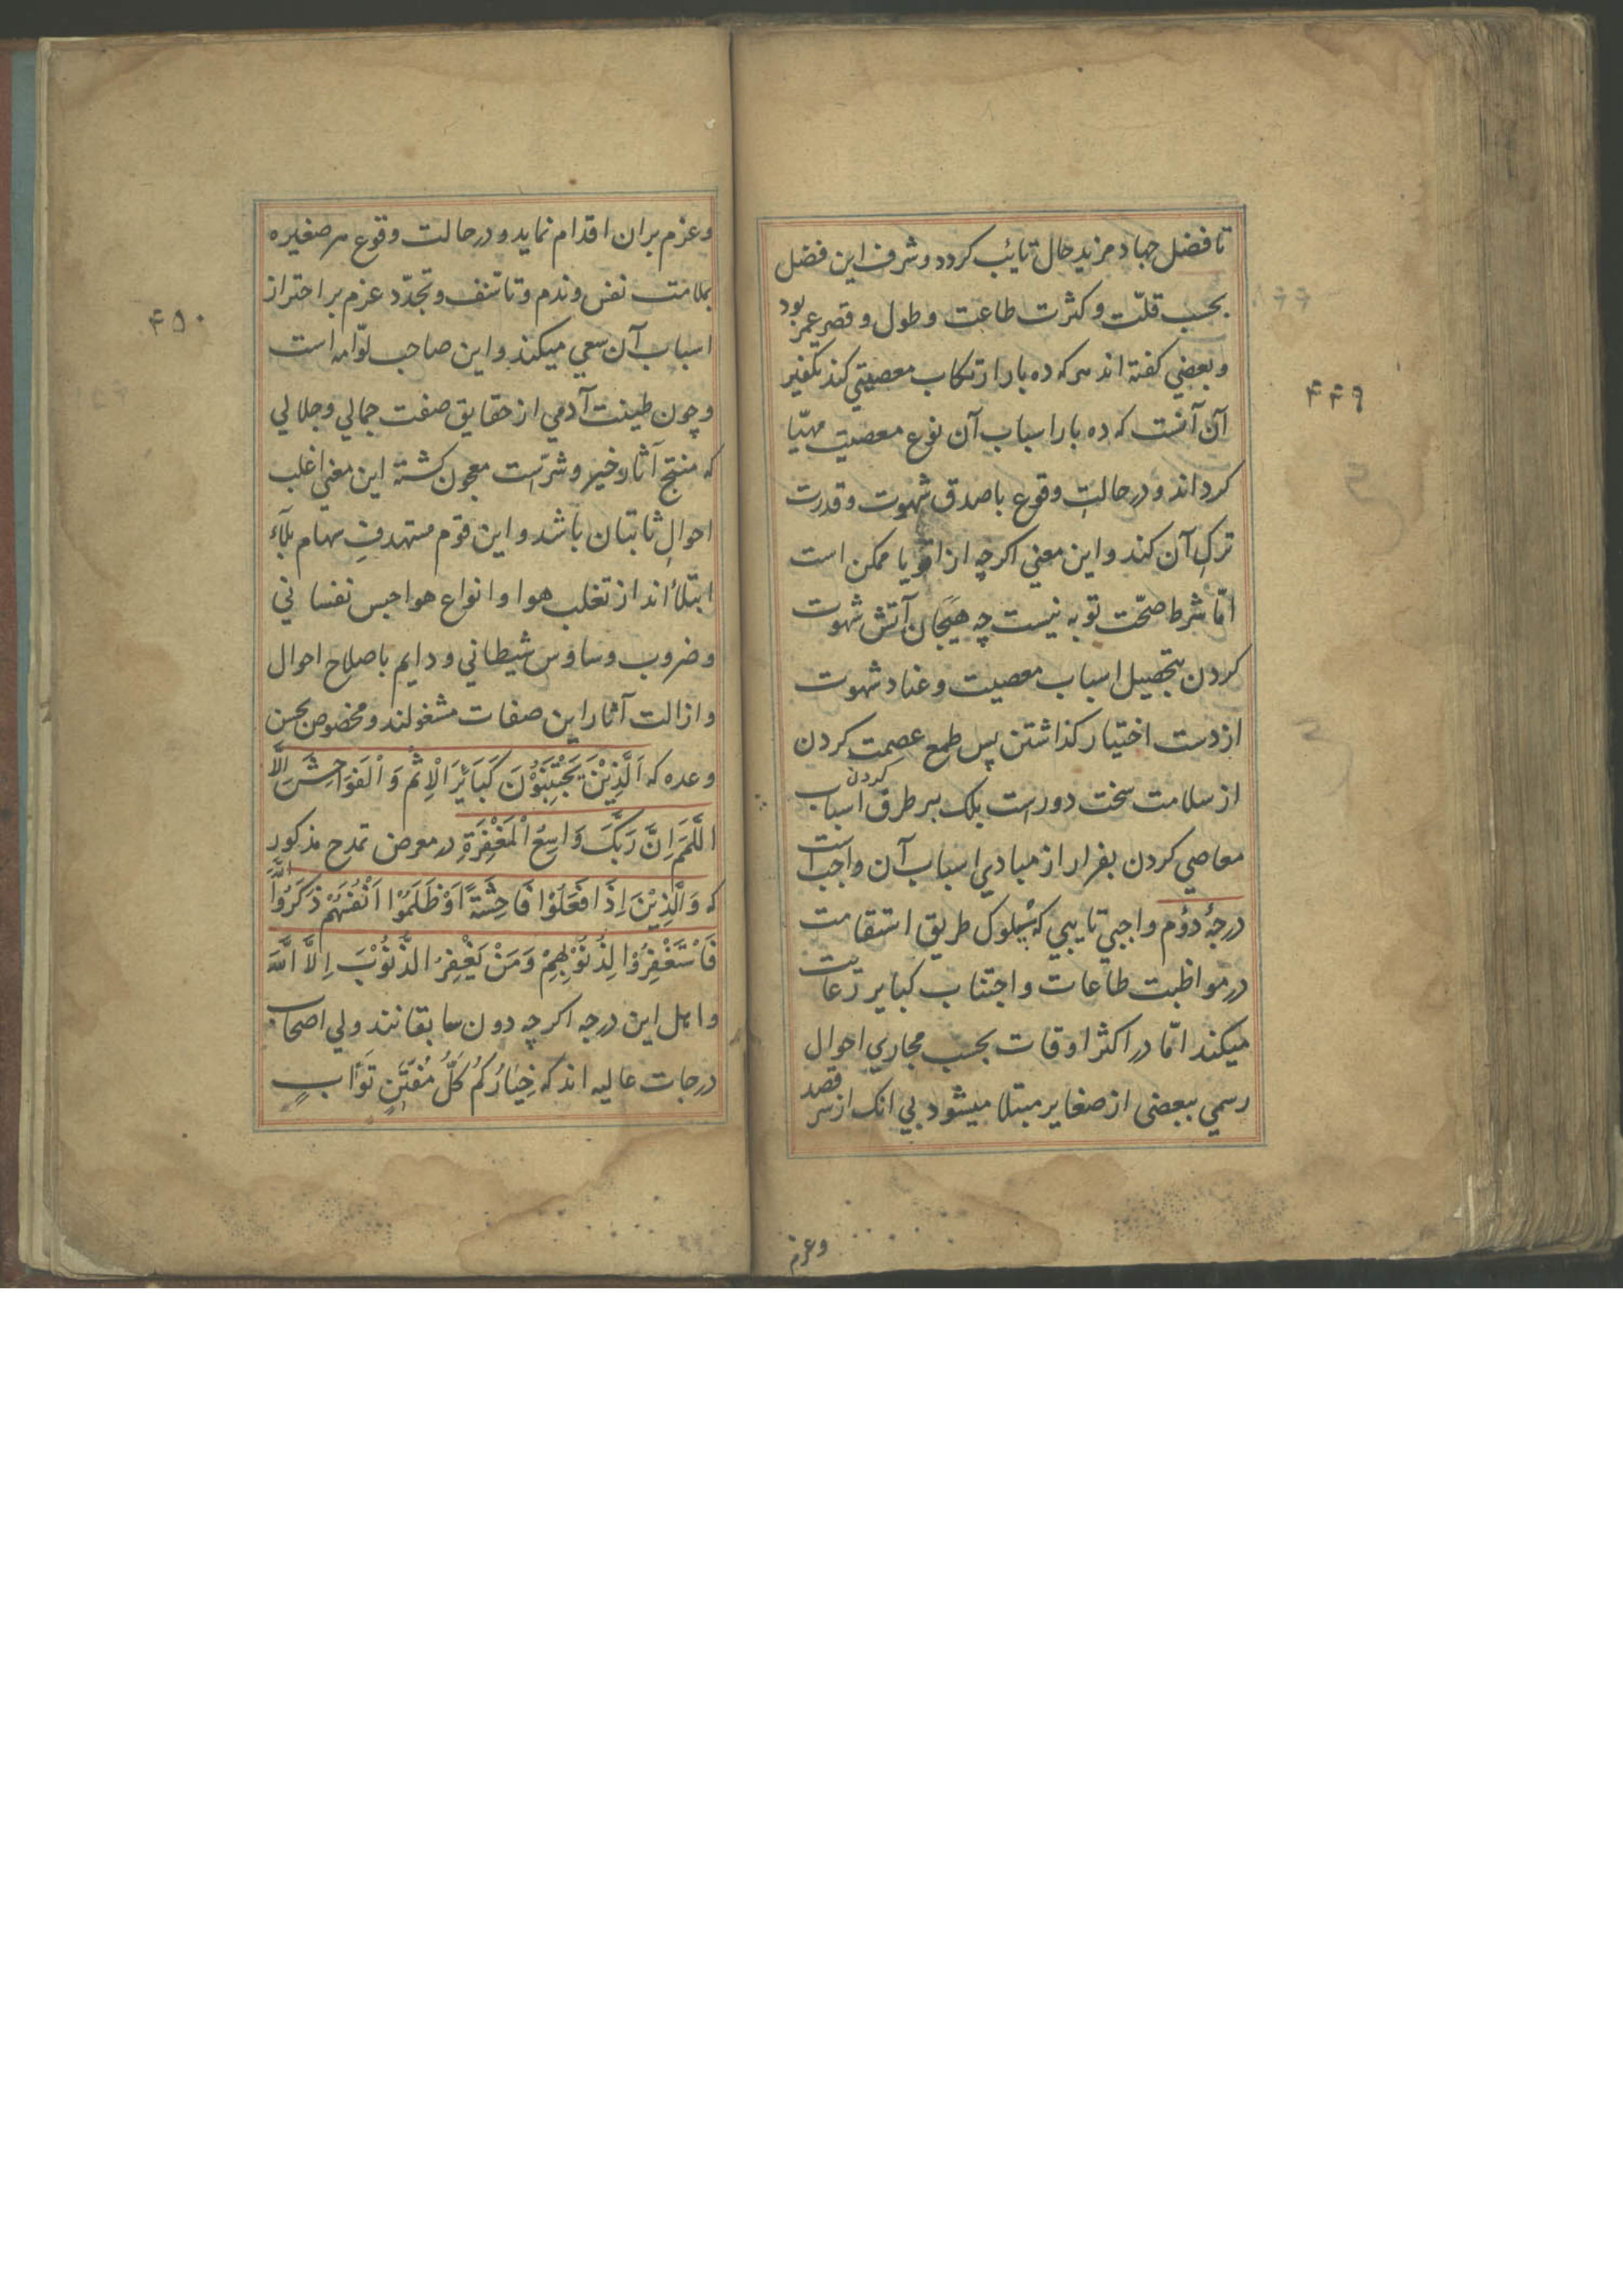 تا فضل جهاد مزید حال تایٔب کردد و شرف این فضل
بحسب قلّت و کثرت طاعت و طول و قصر عمر بود
و بعضي کفته اند هرکه ده بار ارتکاب معصیتي کند تکفیر
آن آنست که ده بار اسباب آن نوع معصیت مهیّا
کرداند و در حالتِ وقوع با صدق شهوت و قدرت
ترکِ آن کند و این معني اکرچه از اقویا ممکن است
امّا شرط صحّت توبه نیست چه هَیَجان آتش شهوت
کردن بتحصیل اسباب معصیت و عناد شهوت
از دست اختیار کذاشتن پس طمع عصمت کردن
از سلامت سخت دورست بلک بر طرق کردن اسباب
معاصي کردن بفرار از مبادي اسباب آن واجب است
درجۀ دوُم واجبي تایبي که سلوک طریق استقامت
در مواظبت طاعات و اجتناب کبایر رعایت
میکند امّا در اکثر اوقات بحسب مجاري احوال
رسمي ببعضی از صغایر مبتلا میشود بي انک از سر قصد
وعزم
۴۴۹
و عزم بران اقدام نماید و در حالت وقوع هر صغیره
بملامت نفس و ندم و تاسّف و تجدّد عزم بر احتراز
اسباب آن سعي میکند و این صاحب لوّامه است
و چون طینت آدمي از حقایق صفت جمالي و جلالي
که منتج آثار خیر و شرّست معجون کشته این معني اغلب
احوالِ ثابتان باشد و این قوم مستهدفِ سهام بلآء
ابتلاء اند از تغلب هوا و انواع هواجس نفساني
و ضروب وساوس شیطاني و دایم باصلاح احوال
و ازالت آثار این صفات مشغولند و مخصوص بحسن
وعده که اَلَّذِیْنَ یَجْتَنِبُوْنَ کَبَایِٔرَ الْاِثْمِ وَ الْفَوَاحِشَ اِلَّا
اللَّمَمَ اِنَّ رَبَّکَ وَاسِعُ الْمَغْفِرَةِ در معرض تمدح مذکور
که وَالَّذِیْنَ اِذَا فَعَلُوْا فَاحِشَةً اَوْ ظَلَمُوْا اَنْفُسَهُمْ ذَکَرُوا اللَّهَ
فَاسْتَغْفِرُوْا لِذُنُوْبِهِمْ وَمَنْ یَغْفِرُ الذُّنُوْبَ اِلَّا اللَّهُ
و اهل این درجه اکرچه دون سابقانند ولي اصحاب
درجات عالیه اند که خِیَارُکُمْ کُلُّ مُفَتَّنٍ تَوَّابٍ
۴۵۰